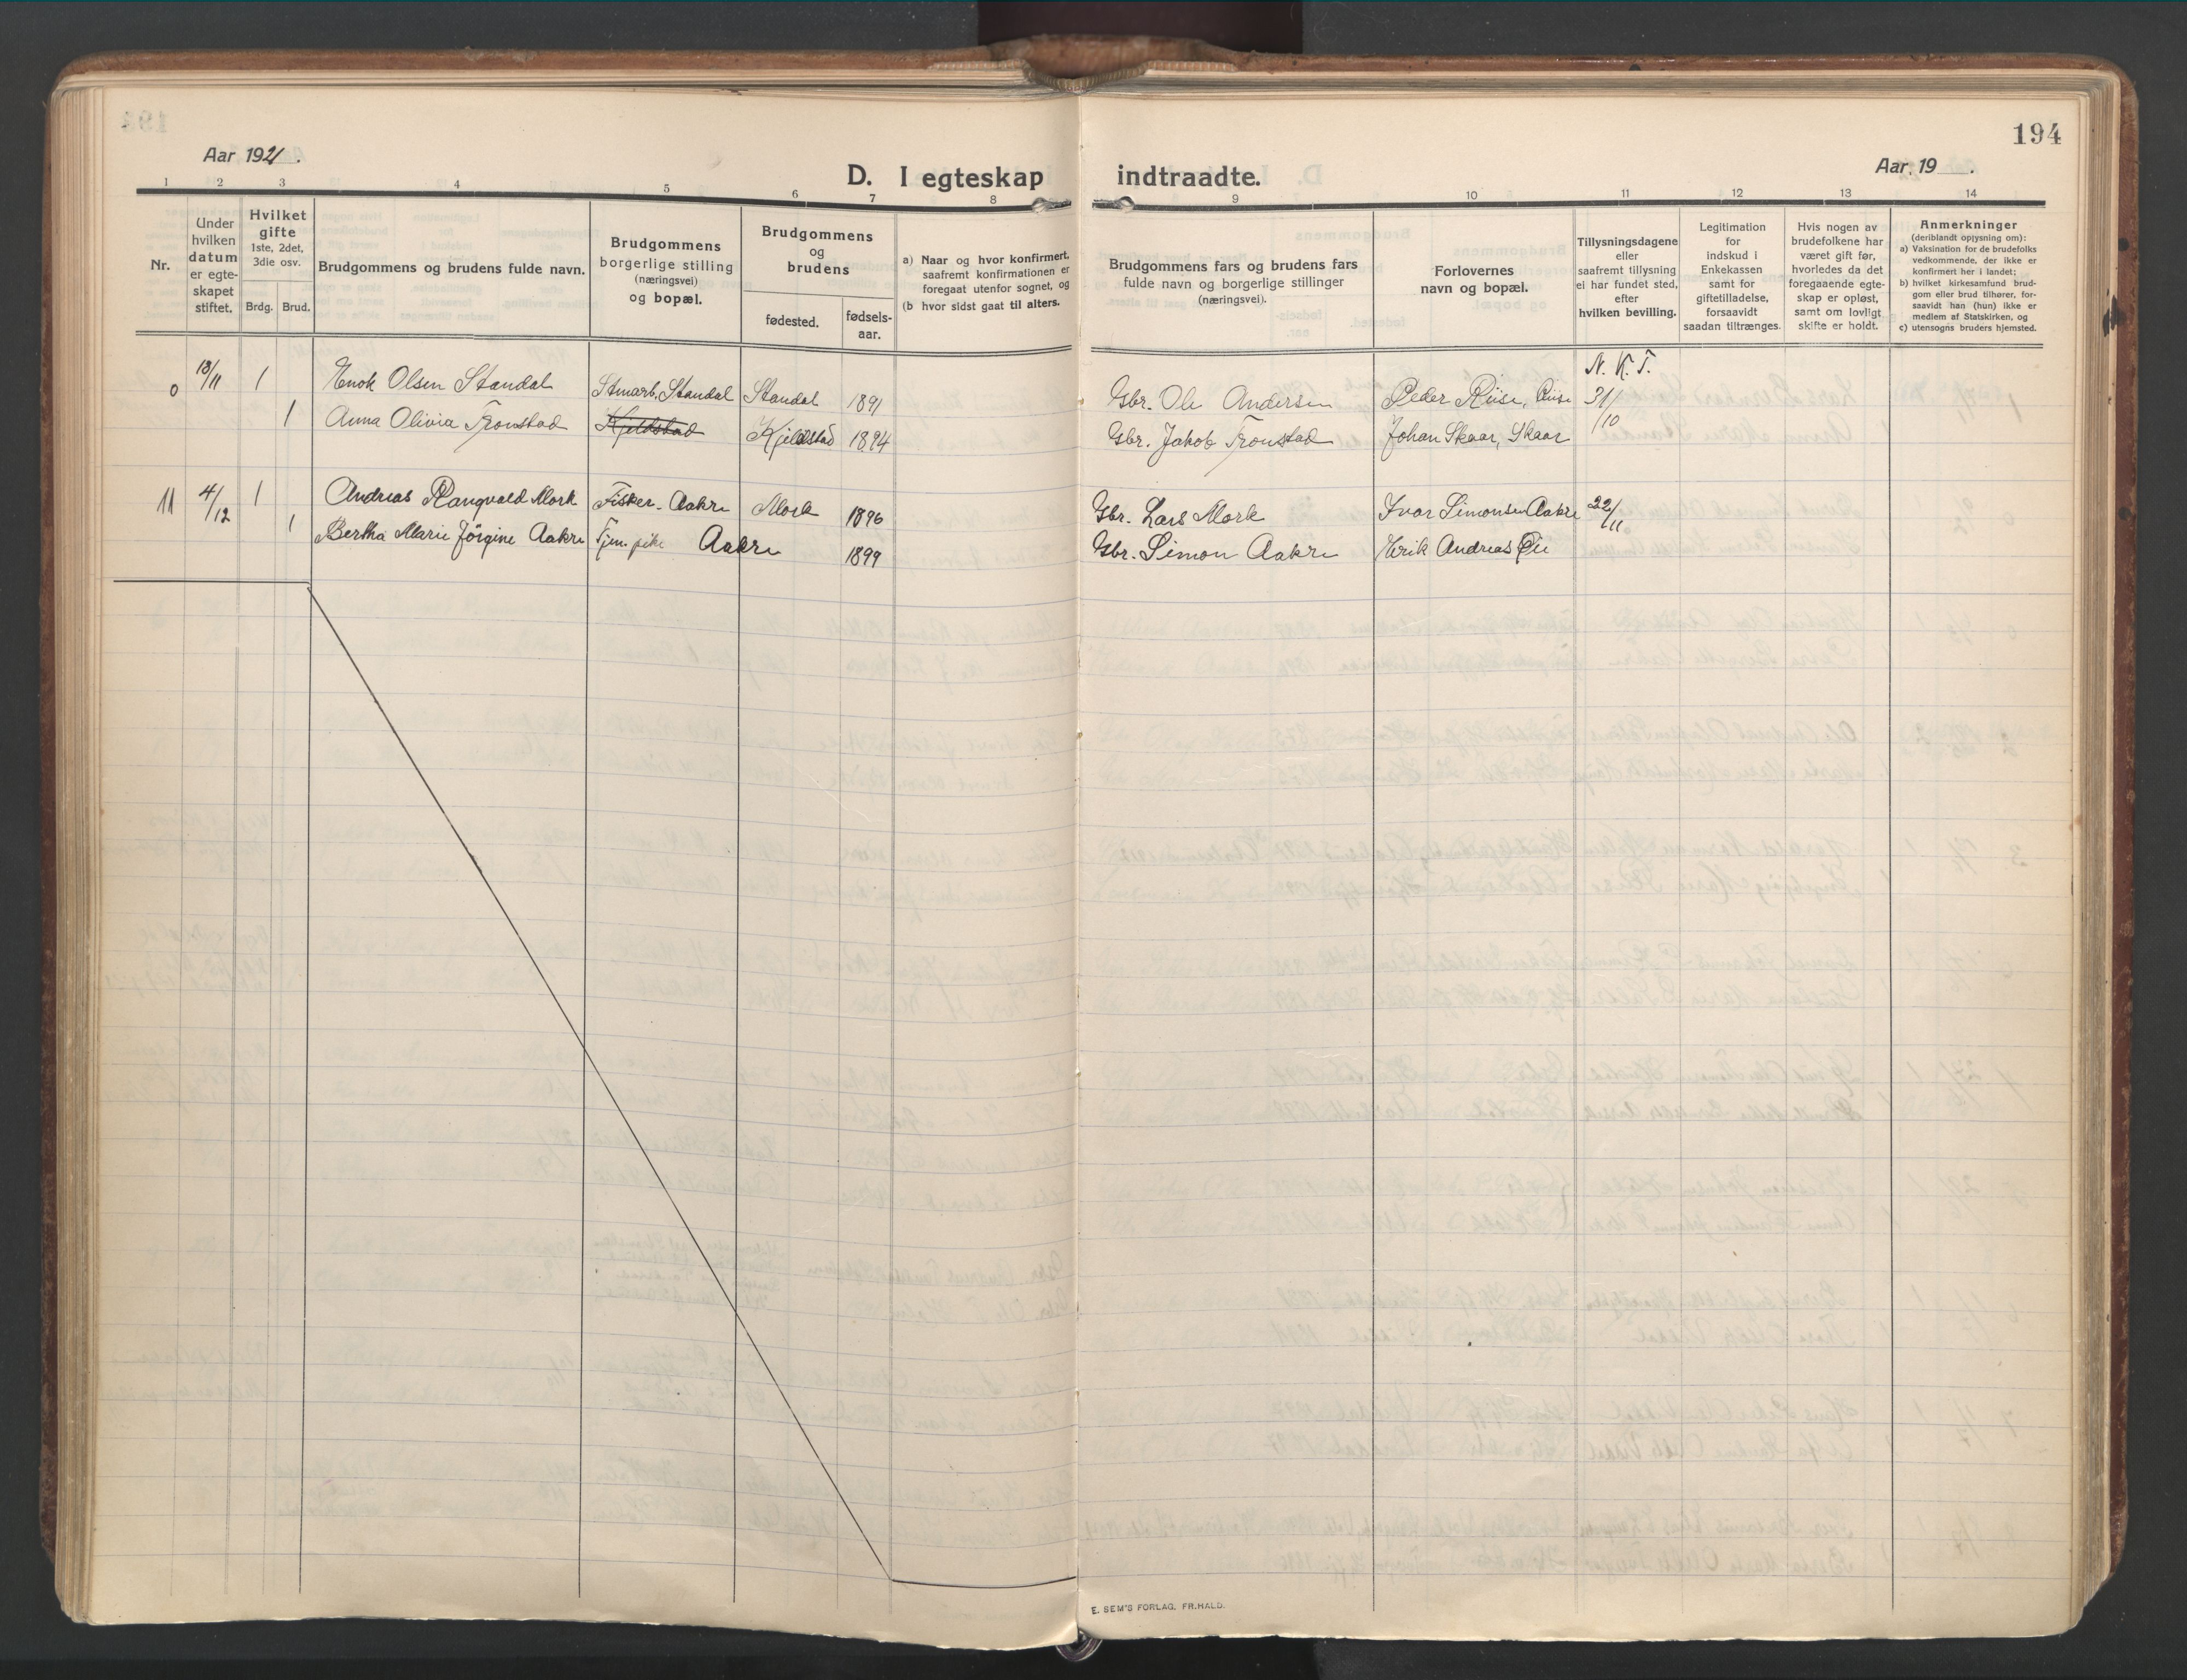 194
Aar 1921.
Aar 19 .
D. I egteskap indtraadte.
1 2 3 4 5 6 7 8 9 10 11 12 13 14
Nr.
Under
hvilken
datum
er egte-
skapet
stiftet.
Hvilket
gifte
1ste, 2det,
3die osv.
Brdg. Brud.
Brudgommens og brudens fulde navn.
Brudgommens
borgerlige stilling
(næringsvei)
og bopæl.
Brudgommens
og
brudens
fødested.
fødsels-
aar.
a) Naar og hvor konfirmert,
saafremt konfirmationen er
foregaat utenfor sognet, og
(b hvor sidst gaat til alters.
Brudgommens fars og brudens fars
fulde navn og borgerlige stillinger
(næringsvei).
Forlovernes
navn og bopæl.
Tillysningsdagene
eller
saafremt tillysning
ei har fundet sted,
efter
hvilken bevilling.
Legitimation
for
indskud i
Enkekassen
samt for
giftetilladelse,
forsaavidt
saadan tiltrænges.
Hvis nogen av
brudefolkene har
været gift før,
hvorledes da det
foregaaende egte-
skap er opløst,
samt om lovligt
skifte er holdt.
Anmerkninger
(deriblandt opjysning om):
a) Vaksination for de brudefolks
vedkommende, der ikke er
konfirmert her i landet;
b) hvilket kirkesamfund brud-
gom eller brud tilhører, for-
saavidt han (hun) ikke er
medlem af Statskirken, og
c) utensogns bruders hjemsted.
N. K. T.
0 13/11 1 Enok Olsen Standal Stmarb. Standal Standal 1891 Gbr. Ole Andersen Peder Riise, Riise 31/10
1 Anna Olivia Tronstad Kjeldstad Kjeldstad 1894 Gbr. Jakob Tronstad Johan Skaar, Skaar
11 4/12 1 Andreas Rangvald Mork Fisker. Aakre Mork 1896 Gbr. Lars Mork Ivar Simonsen Aakre 22/11
1 Bertha Marie Jörgine Aakre Tjen. pike Aakre 1899 Gbr. Simon Aakre Erik Andreas
E. SEM'S FORLAG, FR.HALD.